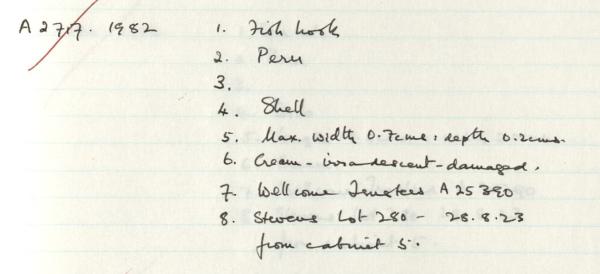 A 2717. 1982 1. Fish hook
2. Peru
3.
4. Shell
5. Max. width 0.7cms. depth 0.2cms.
6. Cream - irradescent - damaged.
7. Wellcome Transfers A 25390
8. Stevens Lot 280 - 28.8.23
from cabinet 5.